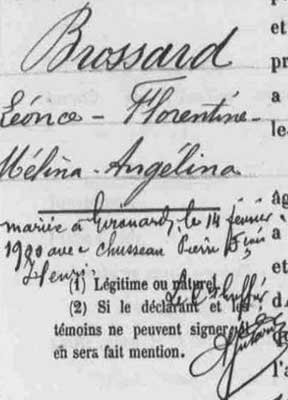 Brossard
Léonce - Florentine -
Mélina - Angélina
mariée à le 14 février
1920 avec Chusseau Pierre
Henri.
(1) Légitime ou naturel.
(2) Si le déclarant et les
témoins ne peuvent signer
en sera fait mention.
et
pr
a
le
âg
a
et
d'
po
l'a